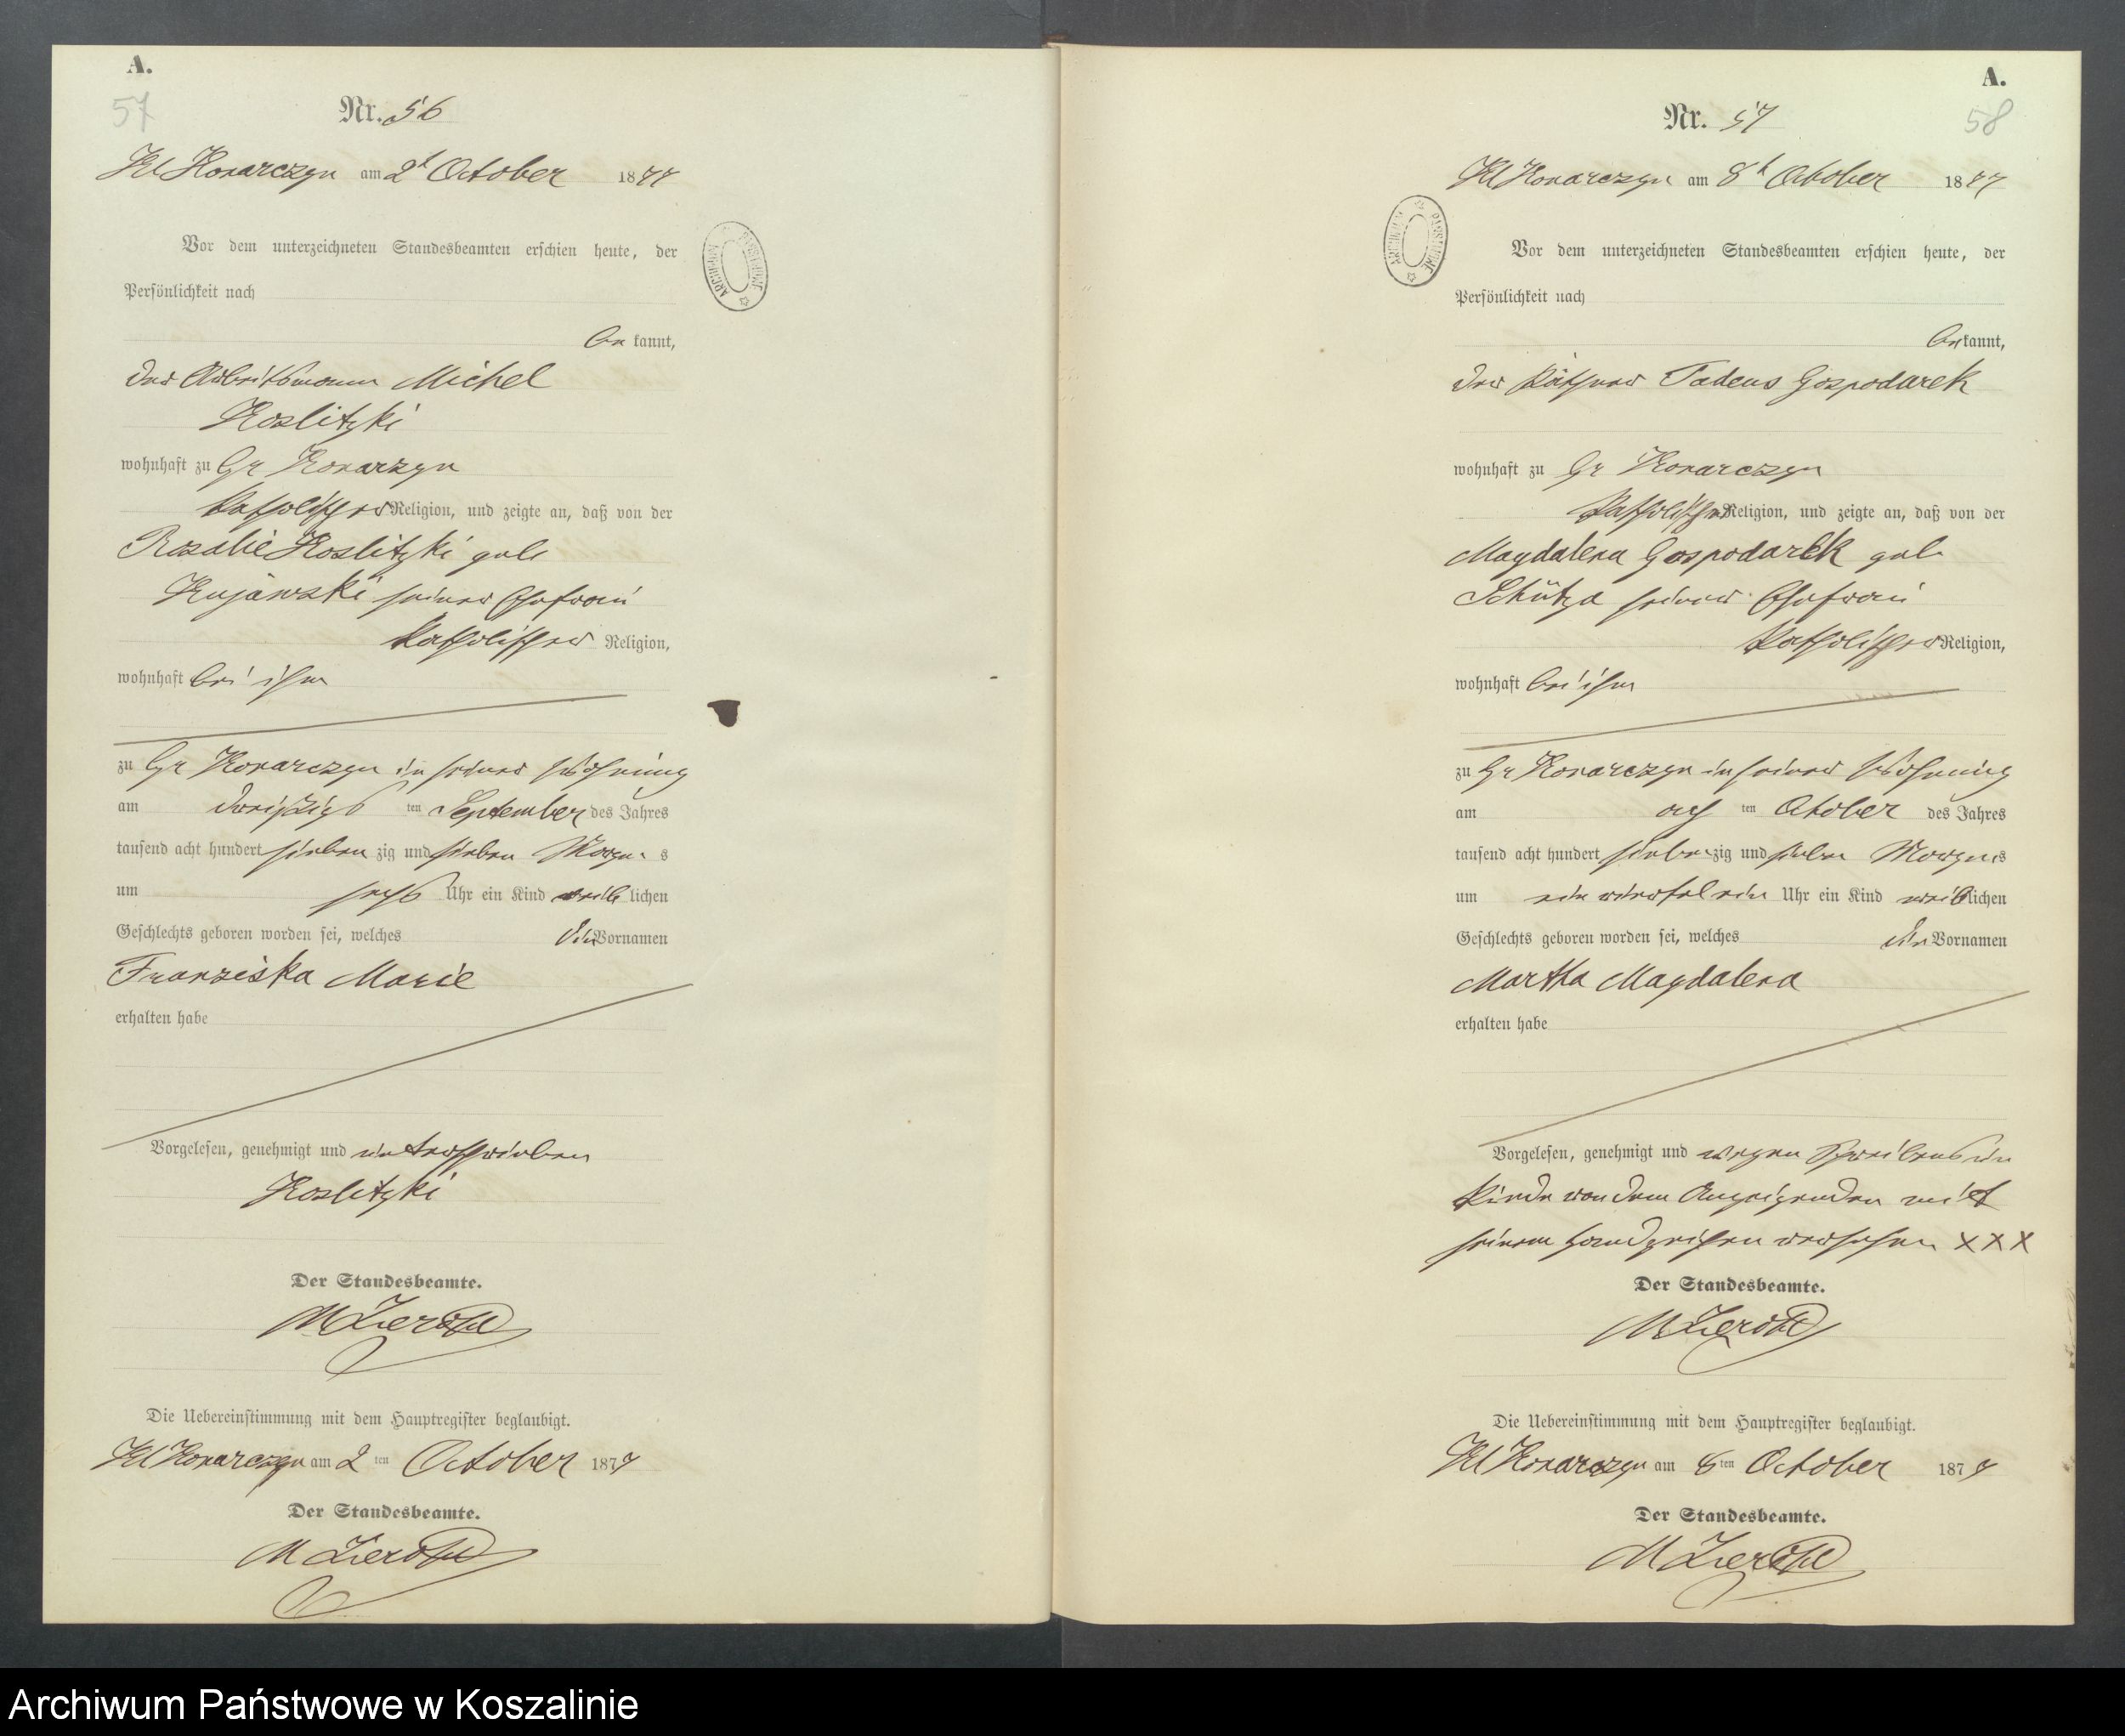 A.
57
Nr. 56
Kl Konarczyn am 2t October 1877
Vor dem unterzeichneten Standesbeamten erschien heute, der
Persönlichkeit nach
be kannt,
der Arbeitsmann Michel
Koslitzki
wohnhaft zu Gr Konarzyn
katholischer Religion, und zeigte an, daß von der
Rosalie Koslitzki geb
Kujawski seiner Ehefrau
katholischer Religion,
wohnhaft bei ihm
zu Gr Konarczyn in seiner Wohnung
am dreißigs ten September des Jahres
tausend acht hundert sieben zig und sieben Morgen s
um sechs Uhr ein Kind weib lichen
Geschlechts geboren worden sei, welches die Vornamen
Franziska Marie
erhalten habe
Vorgelesen, genehmigt und unterschrieben
Koslitzki
Der Standesbeamte.
Die Uebereinstimmung mit dem Hauptregister beglaubigt.
Kl Konarczyn am 2 ten October 1877
Der Standesbeamte.
A.
58
Nr. 57
Kl Konarczyn am 8t October 1877
ARCHIWUM PAŃSTWOWE
Vor dem unterzeichneten Standesbeamten erschien heute, der
Persönlichkeit nach
be kannt,
der Käthner Tadeus Gospodarek
wohnhaft zu Gr Konarczyn
katholischer Religion, und zeigte an, daß von der
Magdalena Gospodarek geb
Schütza seiner Ehefrau
katholischer Religion,
wohnhaft bei ihm
zu Gr Konarczyn in seiner Wohnung
am ach ten Otober des Jahres
tausend acht hundert sieben zig und sieben Morgens
um ein viertel ein Uhr ein Kind weiblichen
Geschlechts geboren worden sei, welches die Vornamen
Martha Magdalena
erhalten habe
Vorgelesen, genehmigt und wegen Schreibens un
kunde von dem Anzeigenden mit
seinem Handzeichen versehen XXX
Der Standesbeamte.
Die Uebereinstimmung mit dem Hauptregister beglaubigt.
Kl Konarczyn am 8 ten October 1877
Der Standesbeamte.
Archiwum Państwowe w Koszalinie